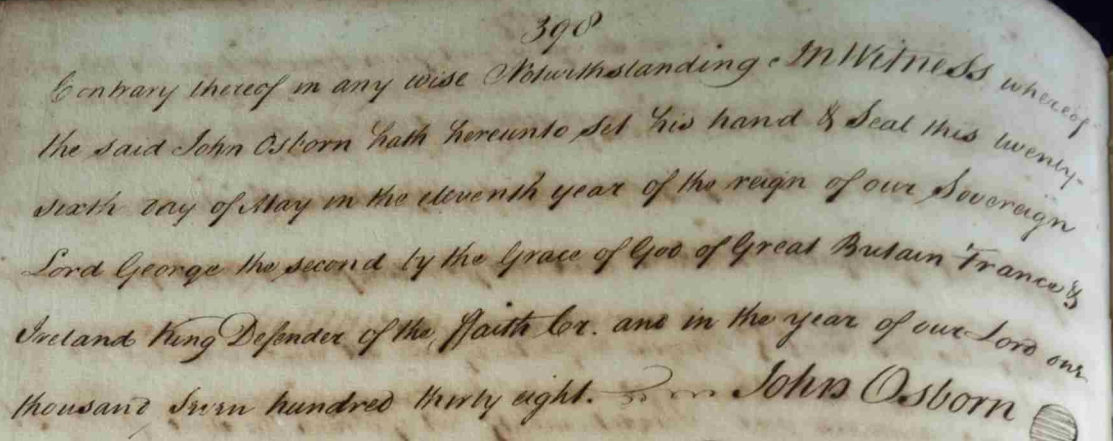 398
Contrary thereof in any wise Notwithstanding. In Witness whereof
the said John Osborn hath hereunto Set his hand & Seal this twenty-
sixth day of May in the eleventh year of the reign of our Sovereign
Lord George the second by the Grace of God of Great Britain France &
Ireland King Defender of the ffaith &c. and in the year of our Lord one
thousand Seven hundred thirty eight. John Osborn